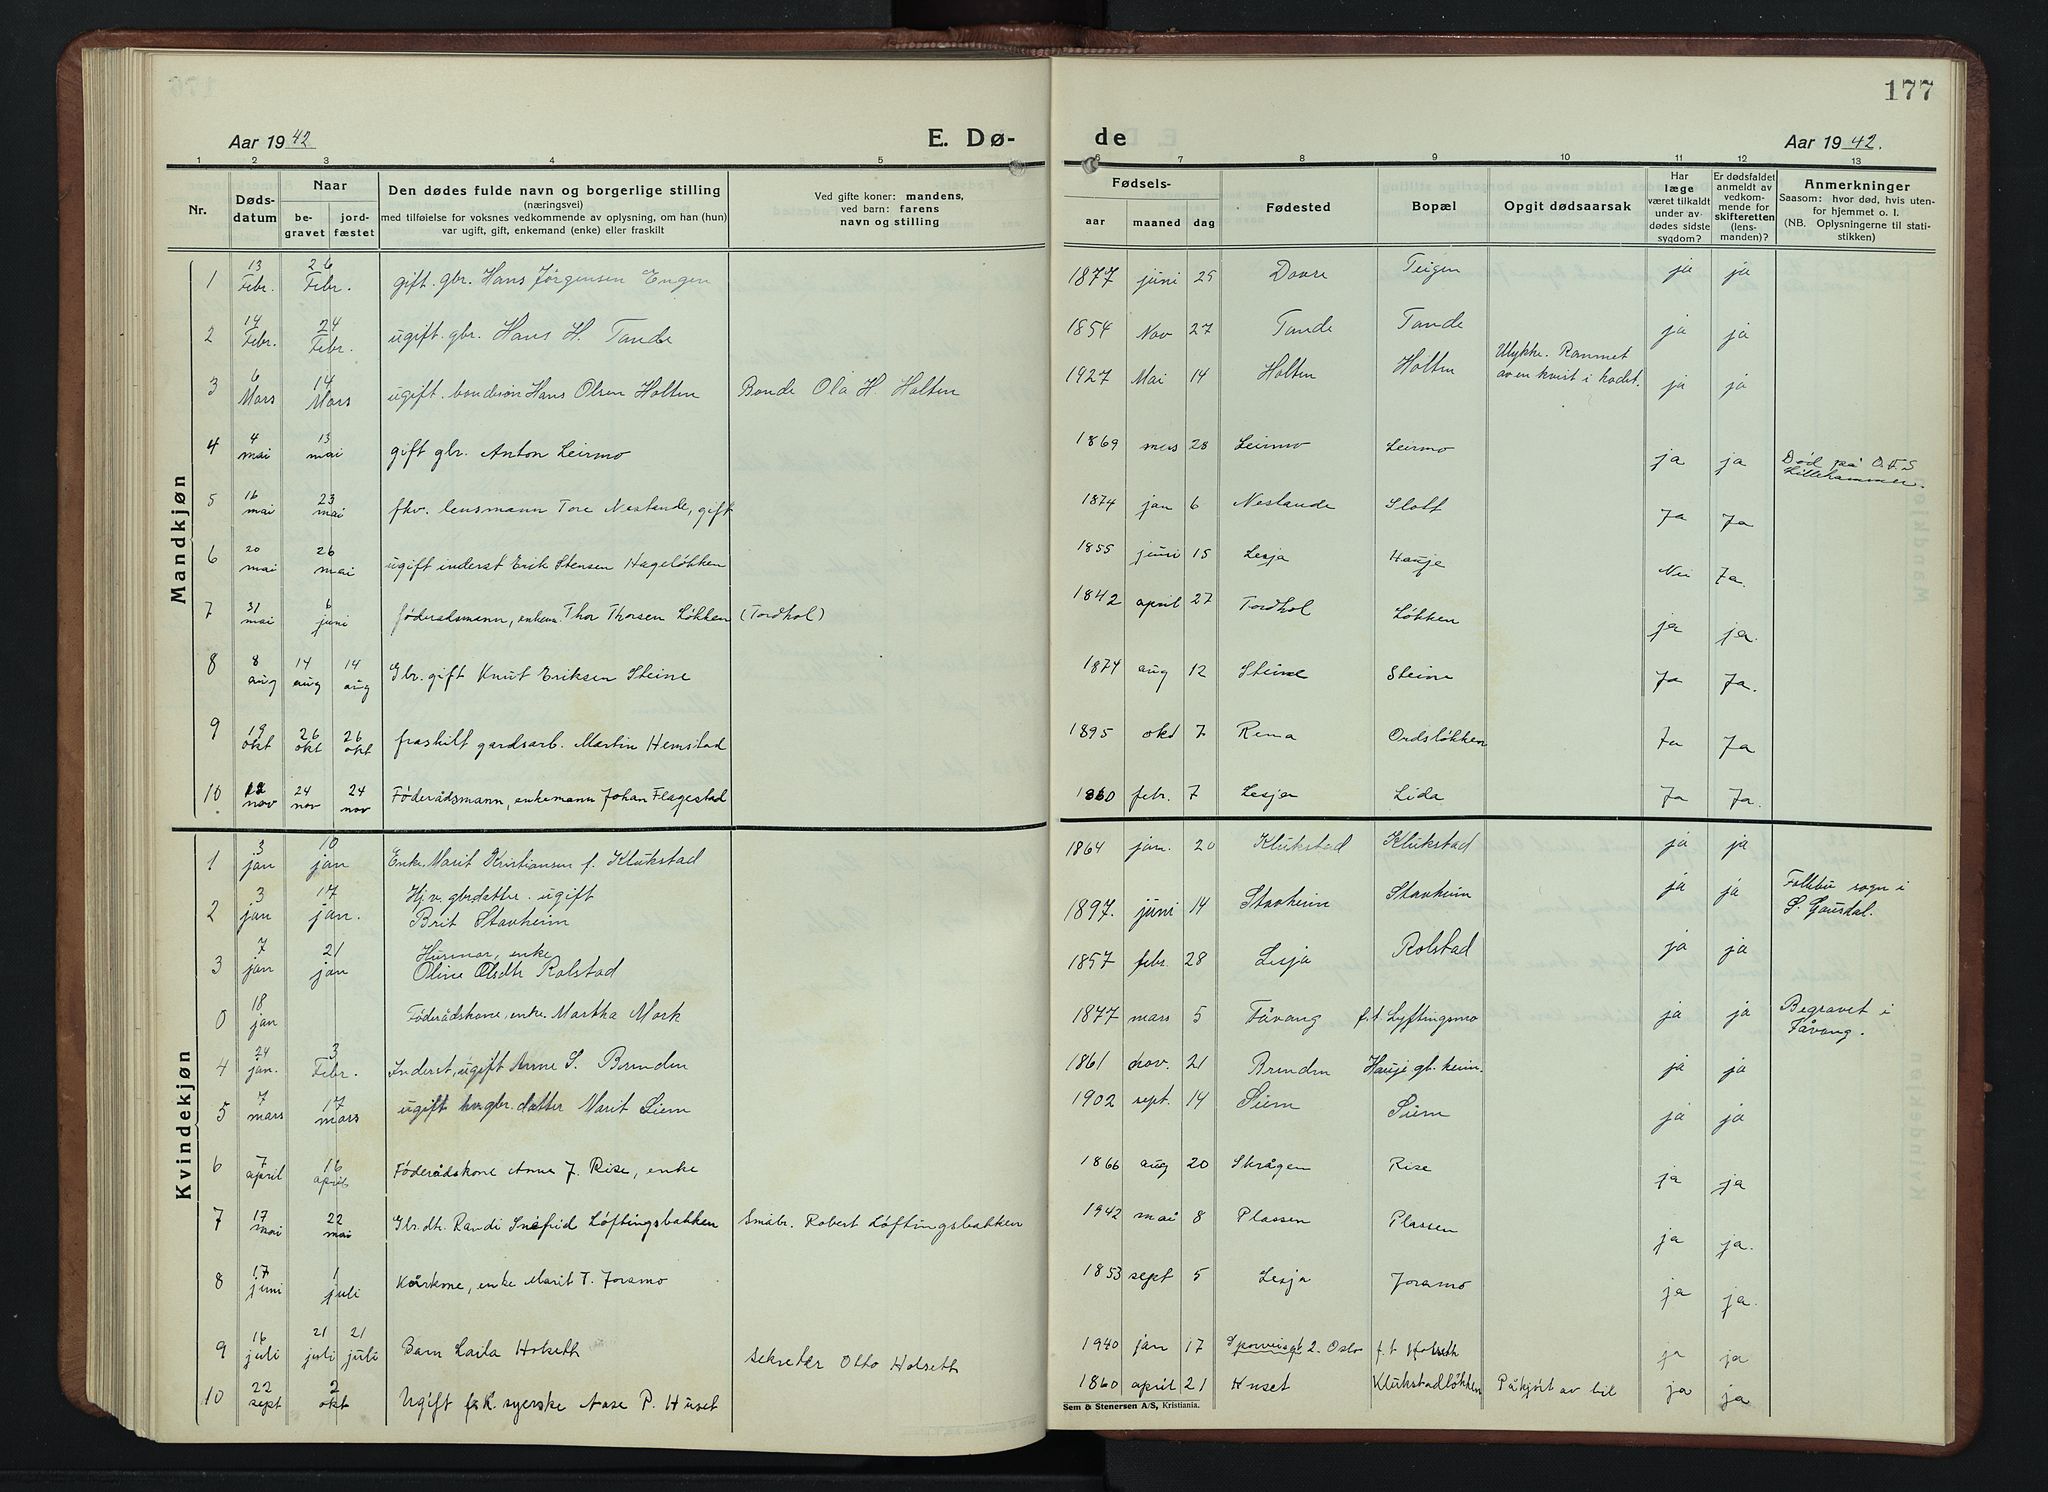 177
Aar 1942
E. Dø-
de
Aar 1942.
1 2 3 4 5 6 7 8 9 10 11 12 13
Nr.
Døds-
datum
Naar
be-
gravet
jord-
fæstet
Den dødes fulde navn og borgerlige stilling
(næringsvei)
med tilføielse for voksnes vedkommende av oplysning, om han (hun)
var ugift, gift, enkemand (enke) eller fraskilt
Ved gifte koner: mandens,
ved barn: farens
navn og stilling
Fødsels-
aar maaned dag
Fødested
Bopæl
Opgit dødsaarsak
Har
læge
været tilkaldt
under av-
dødes sidste
sygdom?
Er dødsfaldet
anmeldt av
vedkom-
mende for
skifteretten
(lens-
manden)?
Anmerkninger
Saasom: hvor død, hvis uten-
for hjemmet o. l.
(NB. Oplysningerne til stati-
stikken)
Mandkjøn
1 13 Febr. 26 Febr. gift. gbr. Hans Jørgensen Engen 1877 juni 25 Dovre Teigen ja ja
2 14 Febr. 24 Febr. ugift. gbr. Hans H. Tande 1854 Nov 27 Tande Tande ja ja
3 6 Mars 14 Mars ugift. bondesøn Hans Olsen Holten Bonde Ola H. Holten 1927 Mai 14 Holten Holten Ulykke. Rammet
av en kvist i hodet. ja ja
4 4 mai 13 mai gift gbr. Anton Leirmo 1869 mars 28 Leirmo Leirmo ja ja Død på O.F.S
Lillehammer.
5 16 mai 23 mai fhv. lensmann Tore Neslande, gift 1874 jan 6 Neslande Slott Ja Ja
6 20 mai 26 mai ugift inderst Erik Stensen Hageløkken 1855 juni 15 Lesja Hauje Nei Ja.
7 31 mai 6 juni føderadsmann, enkem. Thor Thorsen Løkken (Tordhol) 1842 april 27 Tordhol Løkken ja ja.
8 8 aug 14 aug 14 aug Gbr. gift Knut Eriksen Steine 1874 aug 12 Steine Steine Ja Ja.
9 19 okt 26 okt 26 okt fraskilt gardsarb. Martin Hemstad 1895 okt 7 Rena Ordsløkken Ja Ja
10 12 nov 24 nov 24 nov Føderådsmann, enkemann Johan Flagestad 1860 febr. 7 Lesja Lida Ja Ja.
Kvindekjøn
1 3 jan 10 jan Enke. Marit Kristiansen f. Klukstad 1864 jan. 20 Klukstad Klukstad ja ja
2 3 jan 17 jan. Hjv. gbrdatter. ugift
Brit Stavheim 1897. juni 14 Stavheim Stavheim ja ja Follebu sogn i
S. Gausdal.
3 7 jan 21 jan Husmor, enke
Oline Olsdtr Rolstad 1857 febr. 28 Lesja Rolstad ja ja
0 18 jan Føderådskone, enke. Martha Mork 1877 mars 5 Fåvang f.t. Lyftingsmo ja ja Begravet i
Fåvang.
4 24 jan. 3 Febr. Inderst, ugift Anne S. Brenden 1861 nov. 21 Brenden Hauje gl. heim. ja ja
5 7 mars 17 mars ugift hv. gbr. datter Marit Siem 1902 sept. 14 Siem Siem ja ja
6 7 april 16 april Føderådskone Anna J. Rise, enke 1866 aug 20 Skrågen Rise ja ja
7 17 mai 22 mai Gbr. dt. Randi Snefrid Løftingsbakken Småbr. Robert Løftingsbakken 1942 mai 8 Plassen Plassen ja ja.
8 17 juni 1 juli Kårkone, enke Marit T. Joramo 1853 sept 5 Lesja Joramo ja ja.
9 16 juli 21 juli 21 juli Barn Laila Holseth sekretær Otto Holseth 1940 jan 17 Sporveisgt 2. Oslo f.t. Holseth ja ja
10 22 sept 2 okt Ugift syerske Aase P. Huset 1860 april 21 Huset Klukstadløkken Påkjørt av bil ja ja
Sem & Stenersen A/S, Kristiania.